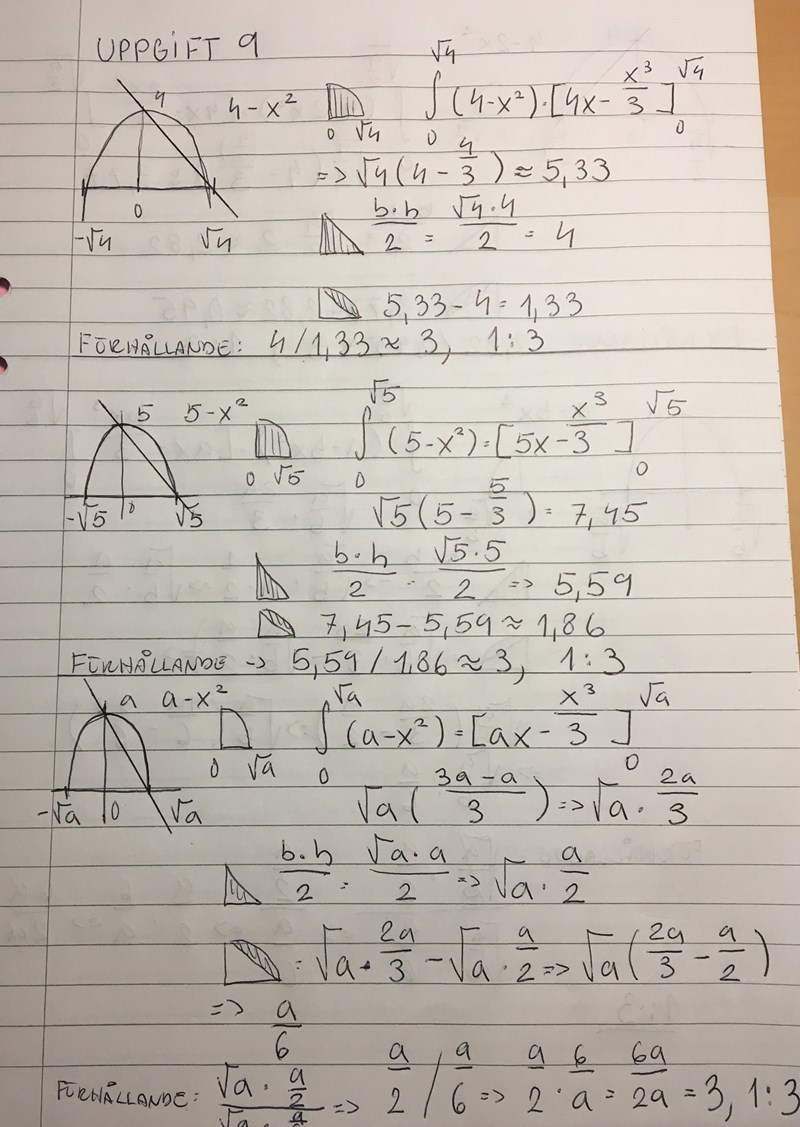 UPPGIFT 9
4 4-x² 0 √4 ∫₀^√4 (4-x²)·[4x-x³/3]₀^√4
-√4 0 √4 => √4(4-4/3) ≈ 5,33
b·h/2 = √4·4/2 = 4
5,33-4=1,33
FÖRHÅLLANDE: 4/1,33 ≈ 3, 1:3
5 5-x² 0 √5 ∫₀^√5 (5-x²)=[5x-x³/3]₀^√5
-√5 0 √5 √5(5-5/3)= 7,45
b·h/2 = √5·5/2 => 5,59
7,45-5,59≈1,86
FÖRHÅLLANDE -> 5,59/1,86≈3, 1:3
a a-x² 0 √a ∫₀^√a (a-x²)=[ax-x³/3]₀^√a
-√a 0 √a √a((3a-a)/3) => √a·2a/3
b·h/2 = √a·a/2 => √a·a/2
= √a·2a/3 - √a·a/2 => √a(2a/3 - a/2)
=> a/6
FÖRHÅLLANDE: (√a·a/2)/(√a·a/6) => a/2 / a/6 => a/2 · 6/a = 6a/2a = 3, 1:3